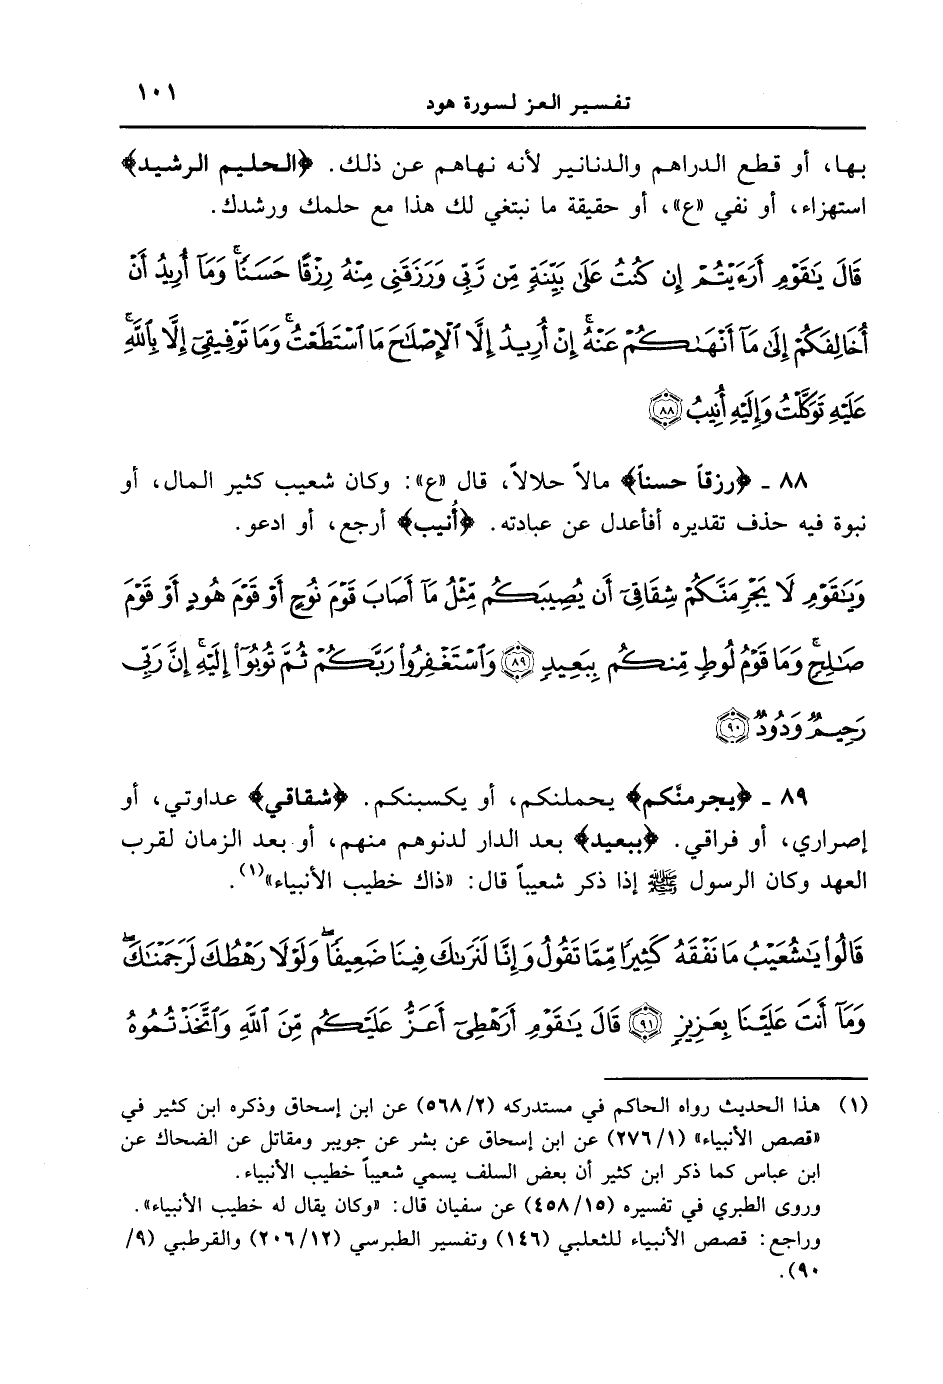 تفسير العز لسورة هود
١٠١
بها، أو قطع الدراهم والدنانير لأنه نهاهم عن ذلك. ﴿الحليم الرشيد﴾
استهزاء، أو نفي «ع»، أو حقيقة ما نبتغي لك هذا مع حلمك ورشدك.
قَالَ يَٰقَوْمِ أَرَءَيْتُمْ إِن كُنتُ عَلَىٰ بَيِّنَةٍ مِّن رَّبِّى وَرَزَقَنِى مِنْهُ رِزْقًا حَسَنًا ۚ وَمَآ أُرِيدُ أَنْ
أُخَالِفَكُمْ إِلَىٰ مَآ أَنْهَىٰكُمْ عَنْهُ ۚ إِنْ أُرِيدُ إِلَّا ٱلْإِصْلَٰحَ مَا ٱسْتَطَعْتُ ۚ وَمَا تَوْفِيقِىٓ إِلَّا بِٱللَّهِ ۚ
عَلَيْهِ تَوَكَّلْتُ وَإِلَيْهِ أُنِيبُ ٨٨
٨٨ - ﴿رزقاً حسناً﴾ مالاً حلالاً، قال «ع»: وكان شعيب كثير المال، أو
نبوة فيه حذف تقديره أفأعدل عن عبادته. ﴿أُنيب﴾ أرجع، أو ادعو.
وَيَٰقَوْمِ لَا يَجْرِمَنَّكُمْ شِقَاقِىٓ أَن يُصِيبَكُم مِّثْلُ مَآ أَصَابَ قَوْمَ نُوحٍ أَوْ قَوْمَ هُودٍ أَوْ قَوْمَ
صَٰلِحٍ ۚ وَمَا قَوْمُ لُوطٍ مِّنكُم بِبَعِيدٍ ٨٩ وَٱسْتَغْفِرُوا۟ رَبَّكُمْ ثُمَّ تُوبُوٓا۟ إِلَيْهِ ۚ إِنَّ رَبِّى
رَحِيمٌ وَدُودٌ ٩٠
٨٩ - ﴿يجرمنَّكم﴾ يحملنكم، أو يكسبنكم. ﴿شقاقي﴾ عداوتي، أو
إصراري، أو فراقي. ﴿ببعيد﴾ بعد الدار لدنوهم منهم، أو بعد الزمان لقرب
العهد وكان الرسول ﷺ إذا ذكر شعيباً قال: «ذاك خطيب الأنبياء»(١).
قَالُوا۟ يَٰشُعَيْبُ مَا نَفْقَهُ كَثِيرًا مِّمَّا تَقُولُ وَإِنَّا لَنَرَىٰكَ فِينَا ضَعِيفًا ۖ وَلَوْلَا رَهْطُكَ لَرَجَمْنَٰكَ ۖ
وَمَآ أَنتَ عَلَيْنَا بِعَزِيزٍ ٩١ قَالَ يَٰقَوْمِ أَرَهْطِىٓ أَعَزُّ عَلَيْكُم مِّنَ ٱللَّهِ وَٱتَّخَذْتُمُوهُ
(١) هذا الحديث رواه الحاكم في مستدركه (٥٦٨/٢) عن ابن إسحاق وذكره ابن كثير في
«قصص الأنبياء» (٢٧٦/١) عن ابن إسحاق عن بشر عن جويبر ومقاتل عن الضحاك عن
ابن عباس كما ذكر ابن كثير أن بعض السلف يسمي شعيباً خطيب الأنبياء.
وروى الطبري في تفسيره (٤٥٨/١٥) عن سفيان قال: «وكان يقال له خطيب الأنبياء».
وراجع: قصص الأنبياء للثعلبي (١٤٦) وتفسير الطبرسي (٢٠٦/١٢) والقرطبي (٩/
٩٠).